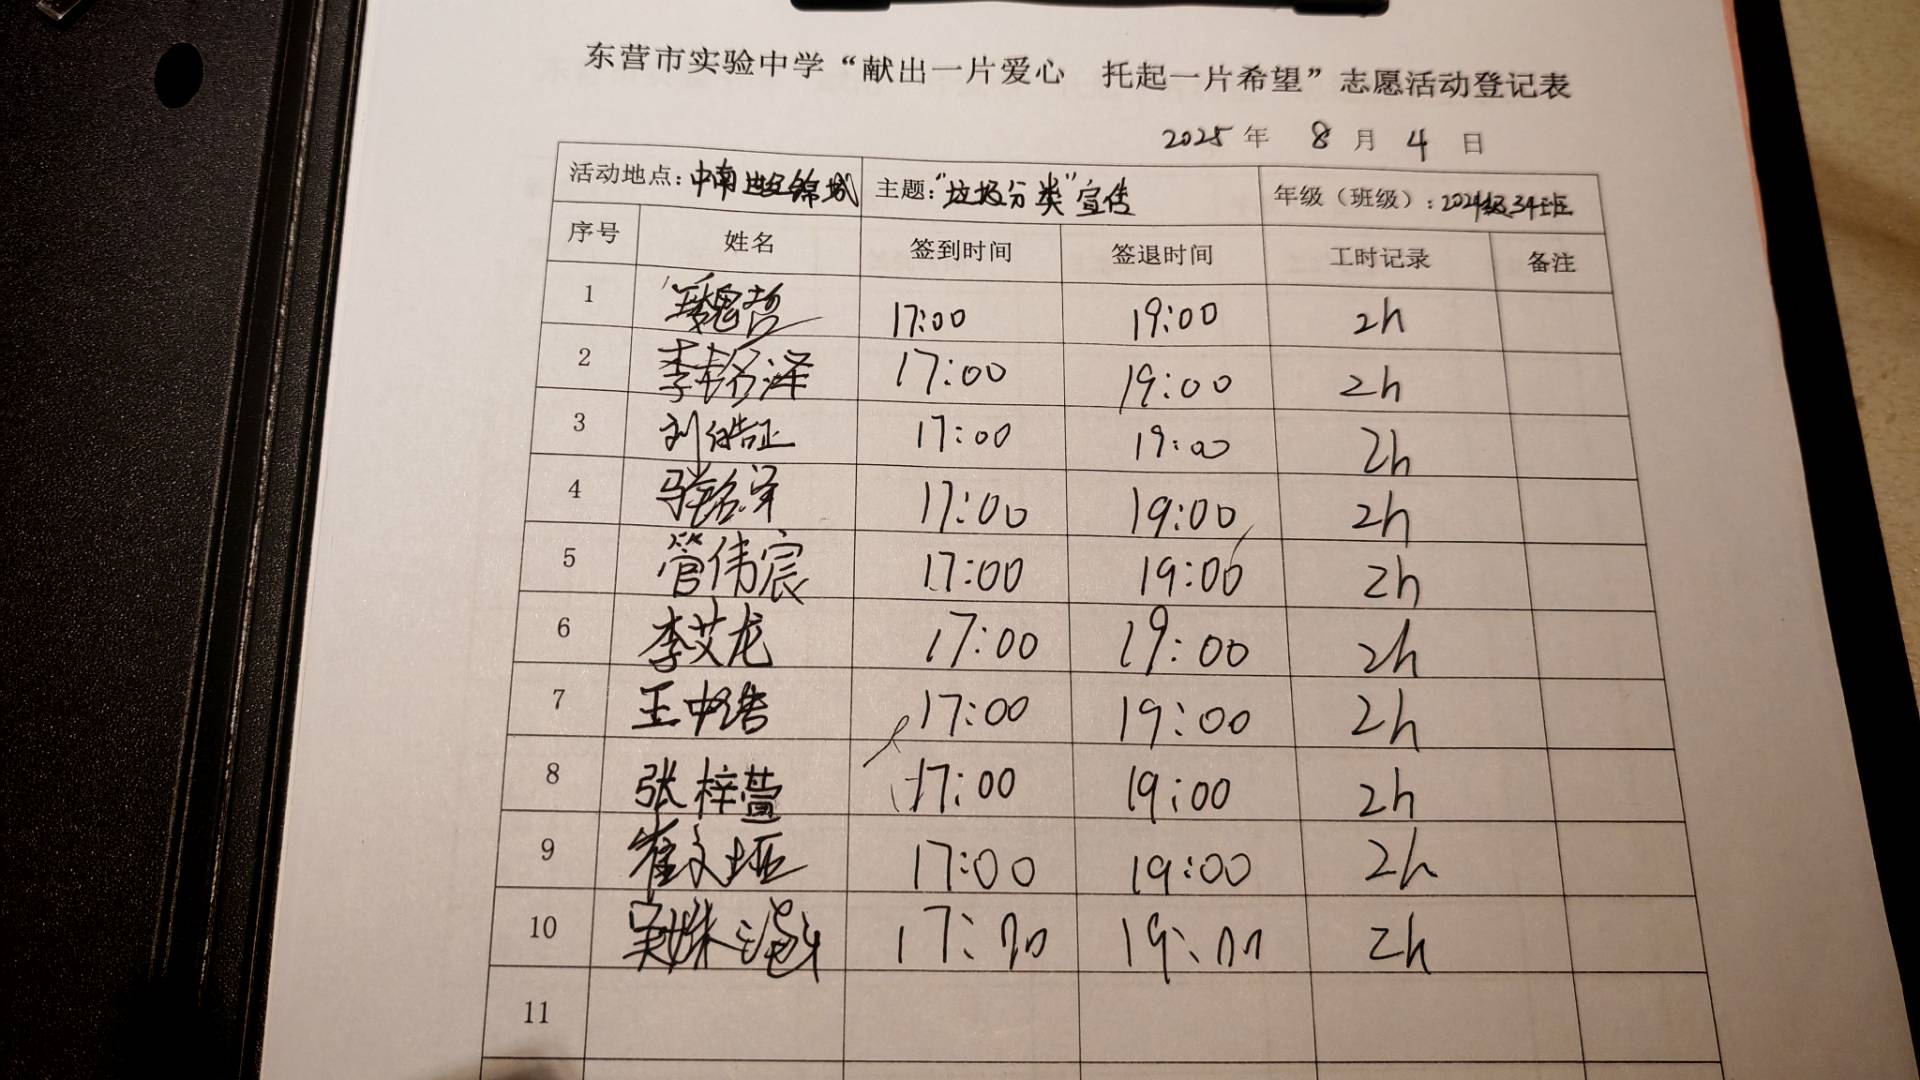 东营市实验中学“献出一片爱心 托起一片希望”志愿活动登记表
2025年 8月 4日
活动地点：中南世纪锦城 主题：“垃圾分类”宣传 年级（班级）：2024级34班
序号 姓名 签到时间 签退时间 工时记录 备注
1 17:00 19:00 2h
2 李铭泽 17:00 19:00 2h
3 刘皓正 17:00 19:00 2h
4 17:00 19:00 2h
5 管伟宸 17:00 19:00 2h
6 李艾龙 17:00 19:00 2h
7 王中浩 17:00 19:00 2h
8 张梓萱 17:00 19:00 2h
9 崔文垭 17:00 19:00 2h
10 17:00 19:00 2h
11